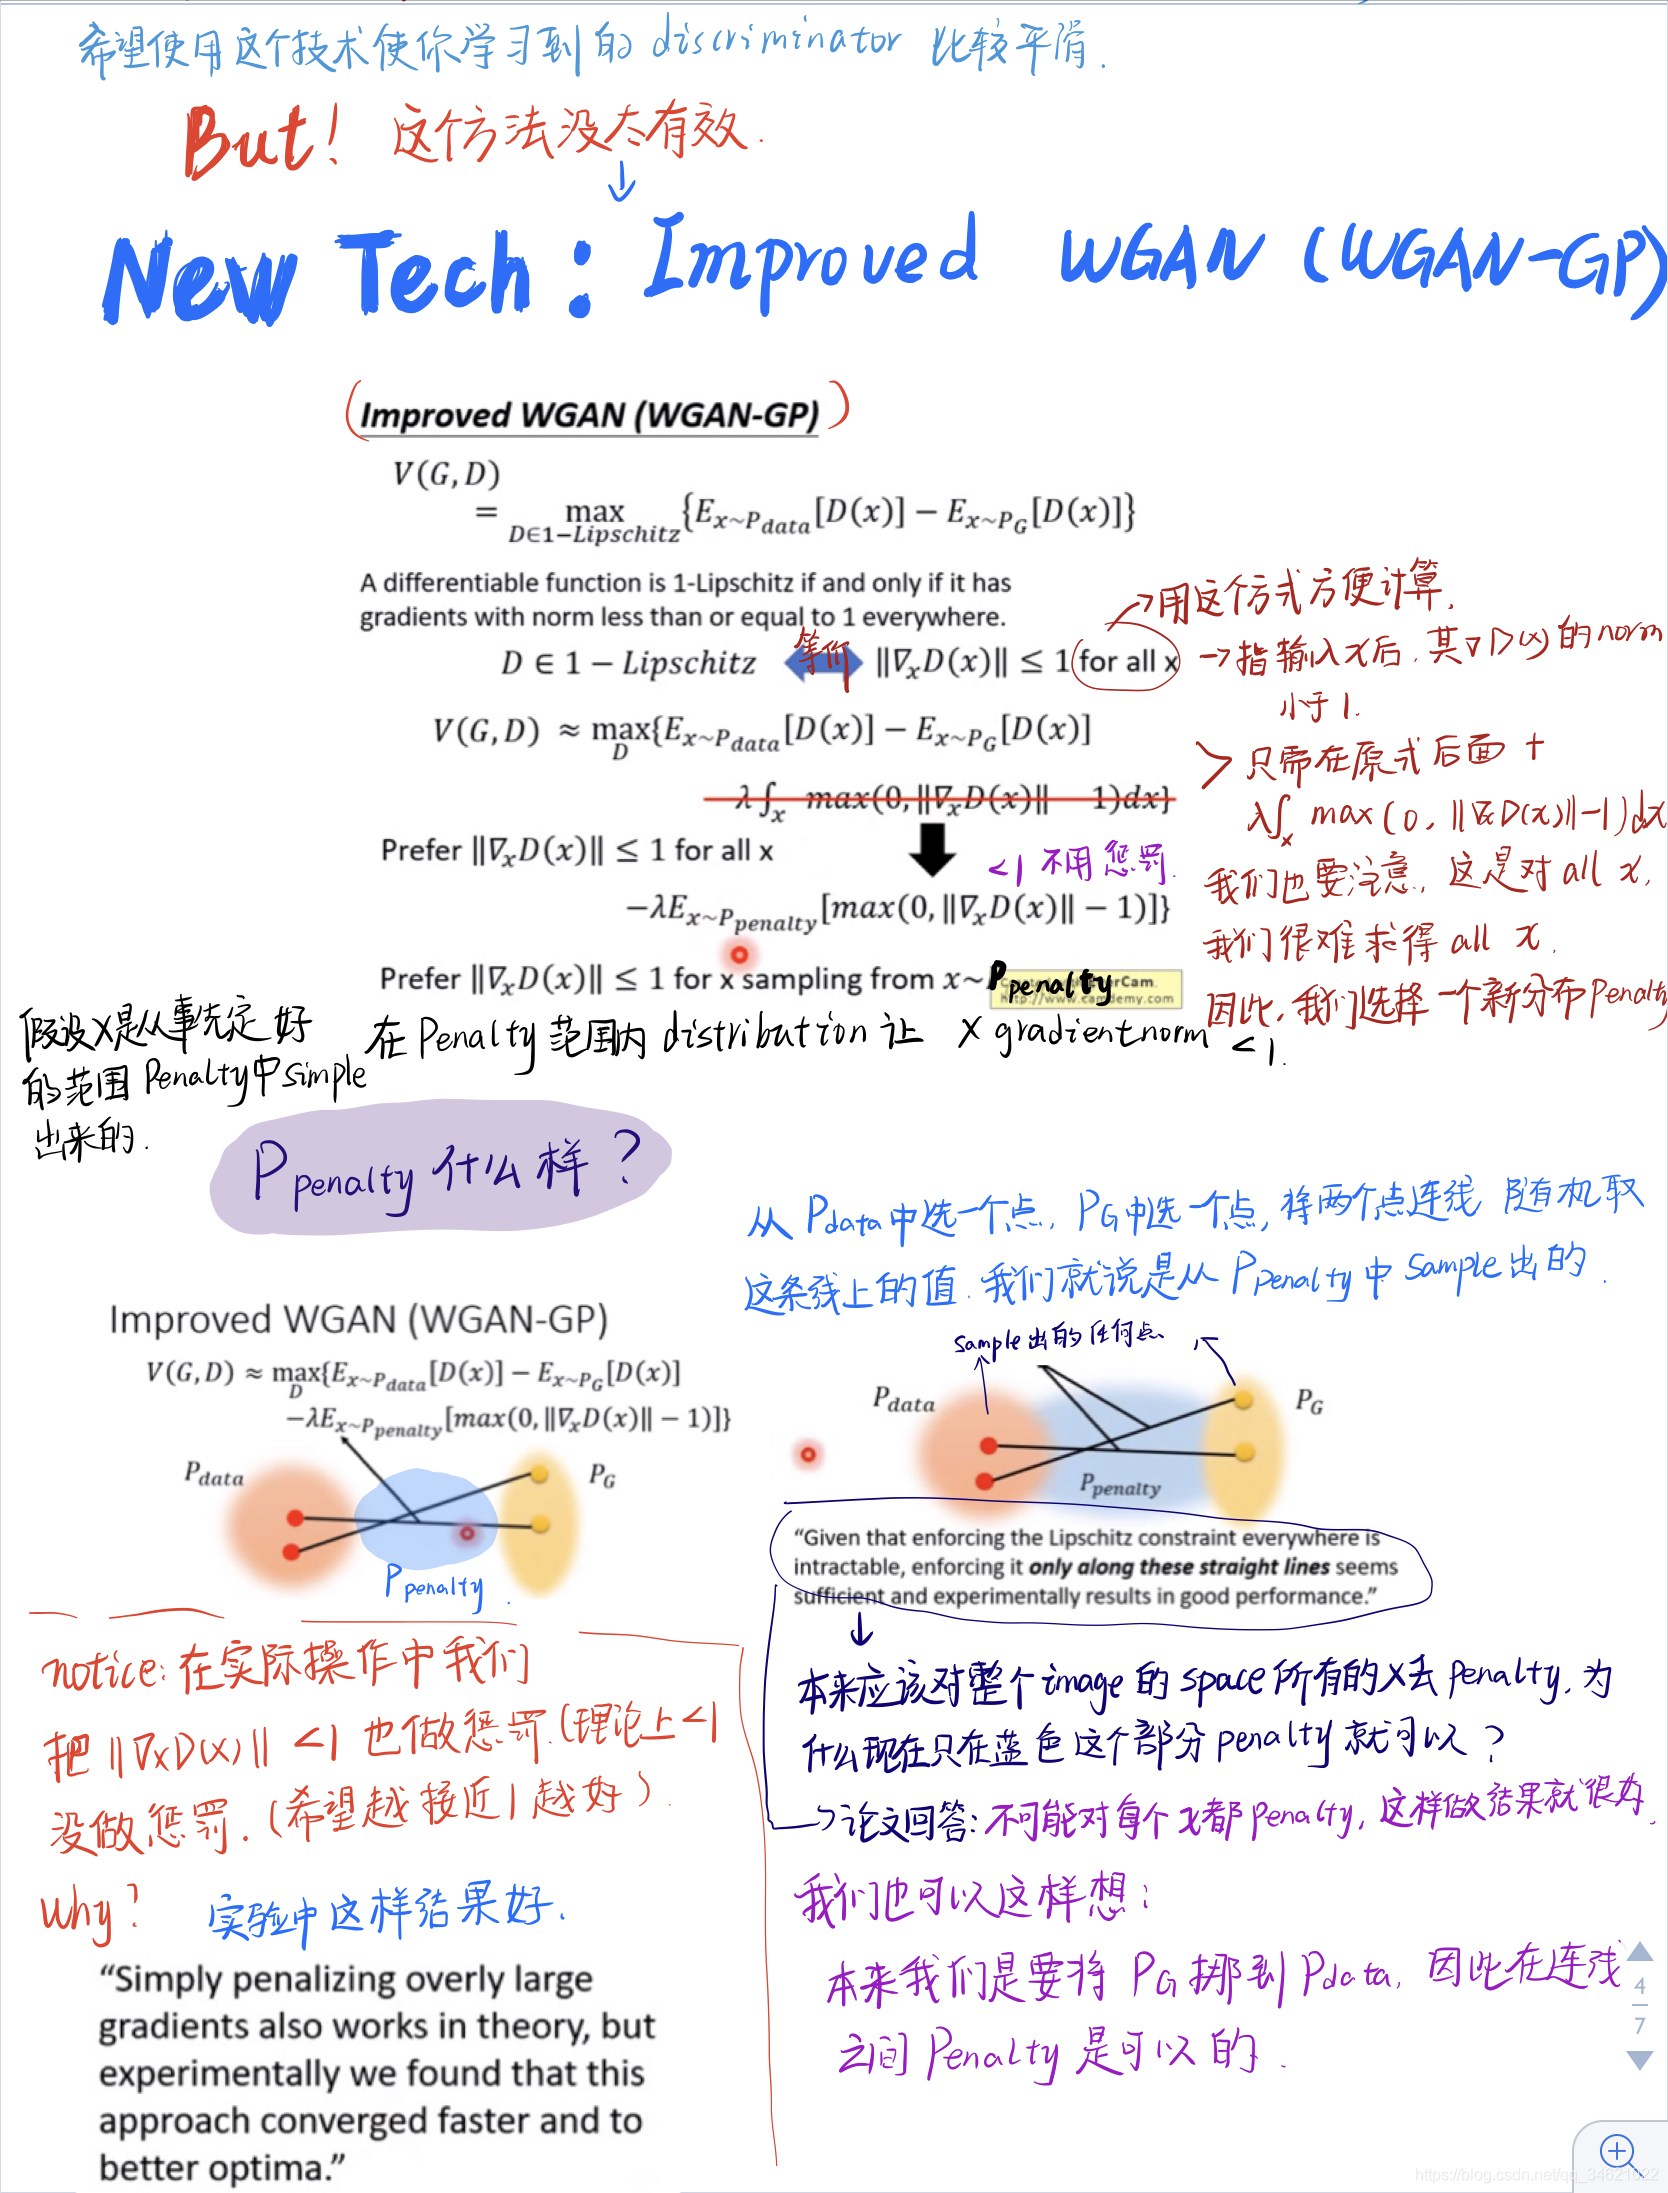 希望使用这个技术使你学习到的 discriminator 比较平滑.
But! 这个方法没太有效.
New Tech: Improved WGAN (WGAN-GP)
Improved WGAN (WGAN-GP)
V(G,D)
= max_{D∈1−Lipschitz} {E_{x~P_{data}}[D(x)] − E_{x~P_G}[D(x)]}
A differentiable function is 1-Lipschitz if and only if it has
gradients with norm less than or equal to 1 everywhere.
D ∈ 1 − Lipschitz 等价 ‖∇_x D(x)‖ ≤ 1 for all x
V(G,D) ≈ max_D {E_{x~P_{data}}[D(x)] − E_{x~P_G}[D(x)]
λ∫_x max(0, ‖∇_x D(x)‖ − 1)dx}
Prefer ‖∇_x D(x)‖ ≤ 1 for all x
<1 不用惩罚.
−λE_{x~P_{penalty}}[max(0, ‖∇_x D(x)‖ − 1)]}
Prefer ‖∇_x D(x)‖ ≤ 1 for x sampling from x~P_{penalty}
erCam.
http://www.camdemy.com
→用这个方式方便计算.
→指输入x后.其∇D(x)的norm
小于1.
> 只需在原式后面 +
λ∫_x max(0, ‖∇xD(x)‖−1)dx
我们也要注意, 这是对 all x,
我们很难求得 all x.
因此, 我们选择一个新分布Penalty
假设X是从事先定好
的范围 Penalty中simple
出来的.
在 Penalty 范围内 distribution 让 X gradientnorm <1.
P_{penalty} 什么样?
从 P_{data}中选一个点, P_G中选一个点, 将两个点连线 随机取
这条线上的值. 我们就说是从 P_{penalty} 中 Sample 出的.
Improved WGAN (WGAN-GP)
V(G,D) ≈ max_D {E_{x~P_{data}}[D(x)] − E_{x~P_G}[D(x)]
−λE_{x~P_{penalty}}[max(0, ‖∇_x D(x)‖ − 1)]}
P_{data}
P_G
P_{penalty}.
sample出的任何点
P_{data}
P_G
P_{penalty}
“Given that enforcing the Lipschitz constraint everywhere is
intractable, enforcing it only along these straight lines seems
sufficient and experimentally results in good performance.”
notice: 在实际操作中我们
把 ‖∇xD(x)‖ <1 也做惩罚.(理论上<1
没做惩罚.(希望越接近1越好).
Why? 实验中这样结果好.
“Simply penalizing overly large
gradients also works in theory, but
experimentally we found that this
approach converged faster and to
better optima.”
本来应该对整个image的space所有的X去penalty, 为
什么现在只在蓝色这个部分penalty就可以?
→论文回答: 不可能对每个x都penalty, 这样做结果就很好.
我们也可以这样想:
本来我们是要将 P_G 挪到 P_{data}, 因此在连线
之间 Penalty 是可以的.
4
7
https://blog.csdn.net/qq_34621022